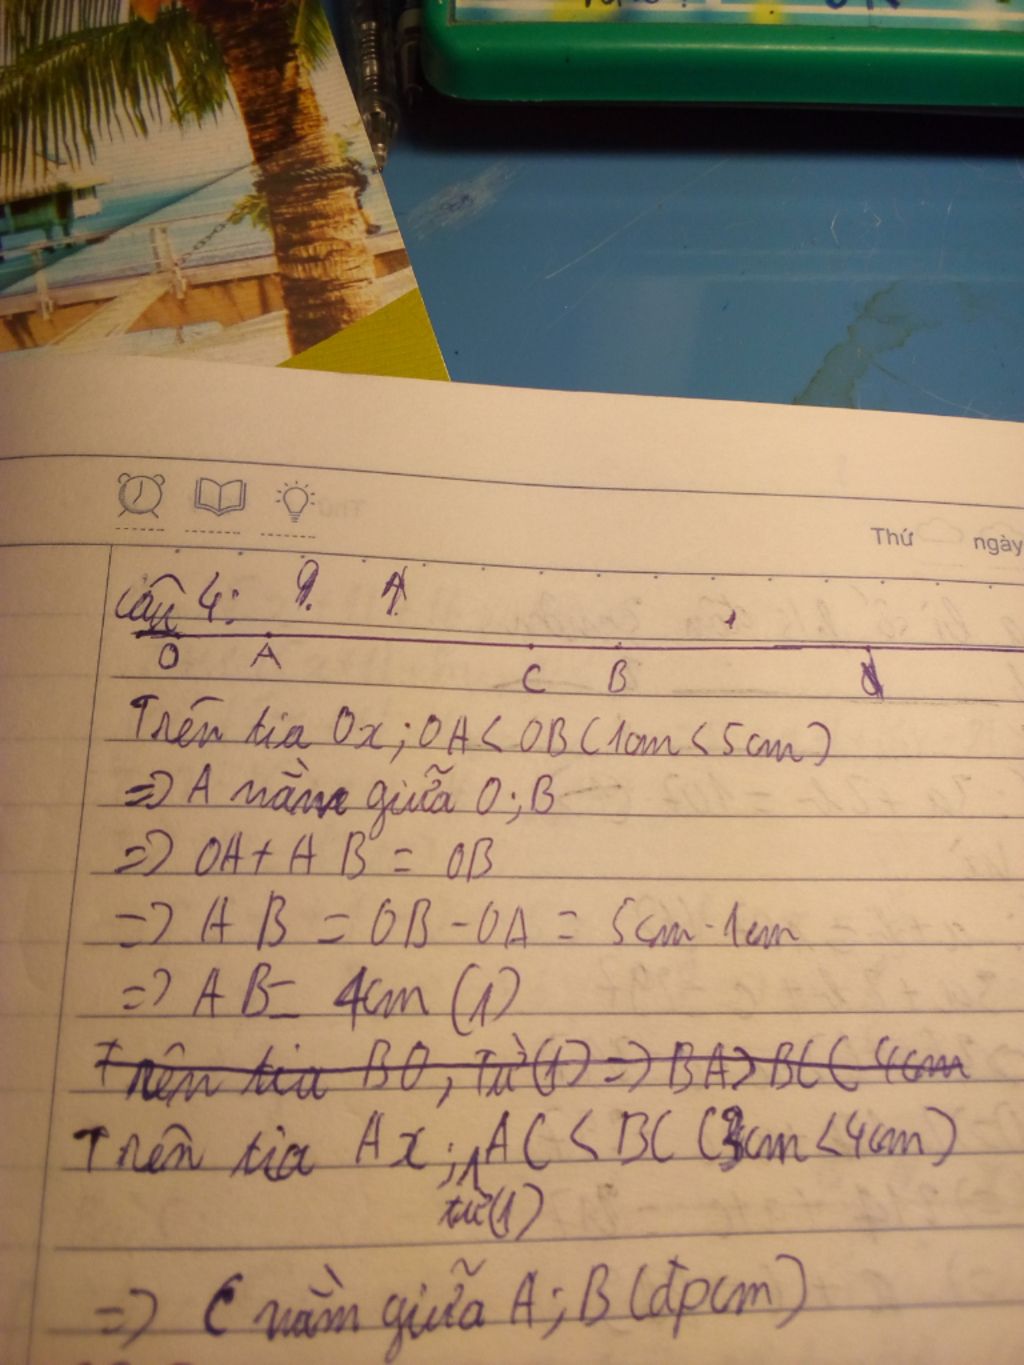 Thứ ngày
Câu 4:
O A C B
Trên tia Ox; OA < OB (1cm < 5cm)
=> A nằm giữa O; B
=> OA + AB = OB
=> AB = OB - OA = 5cm - 1cm
=> AB = 4cm (1)
Trên tia BO, từ (1) => BA > BC ( 4cm
Trên tia Ax; AC < BC (3cm < 4cm)
từ (1)
=> C nằm giữa A; B (đpcm)